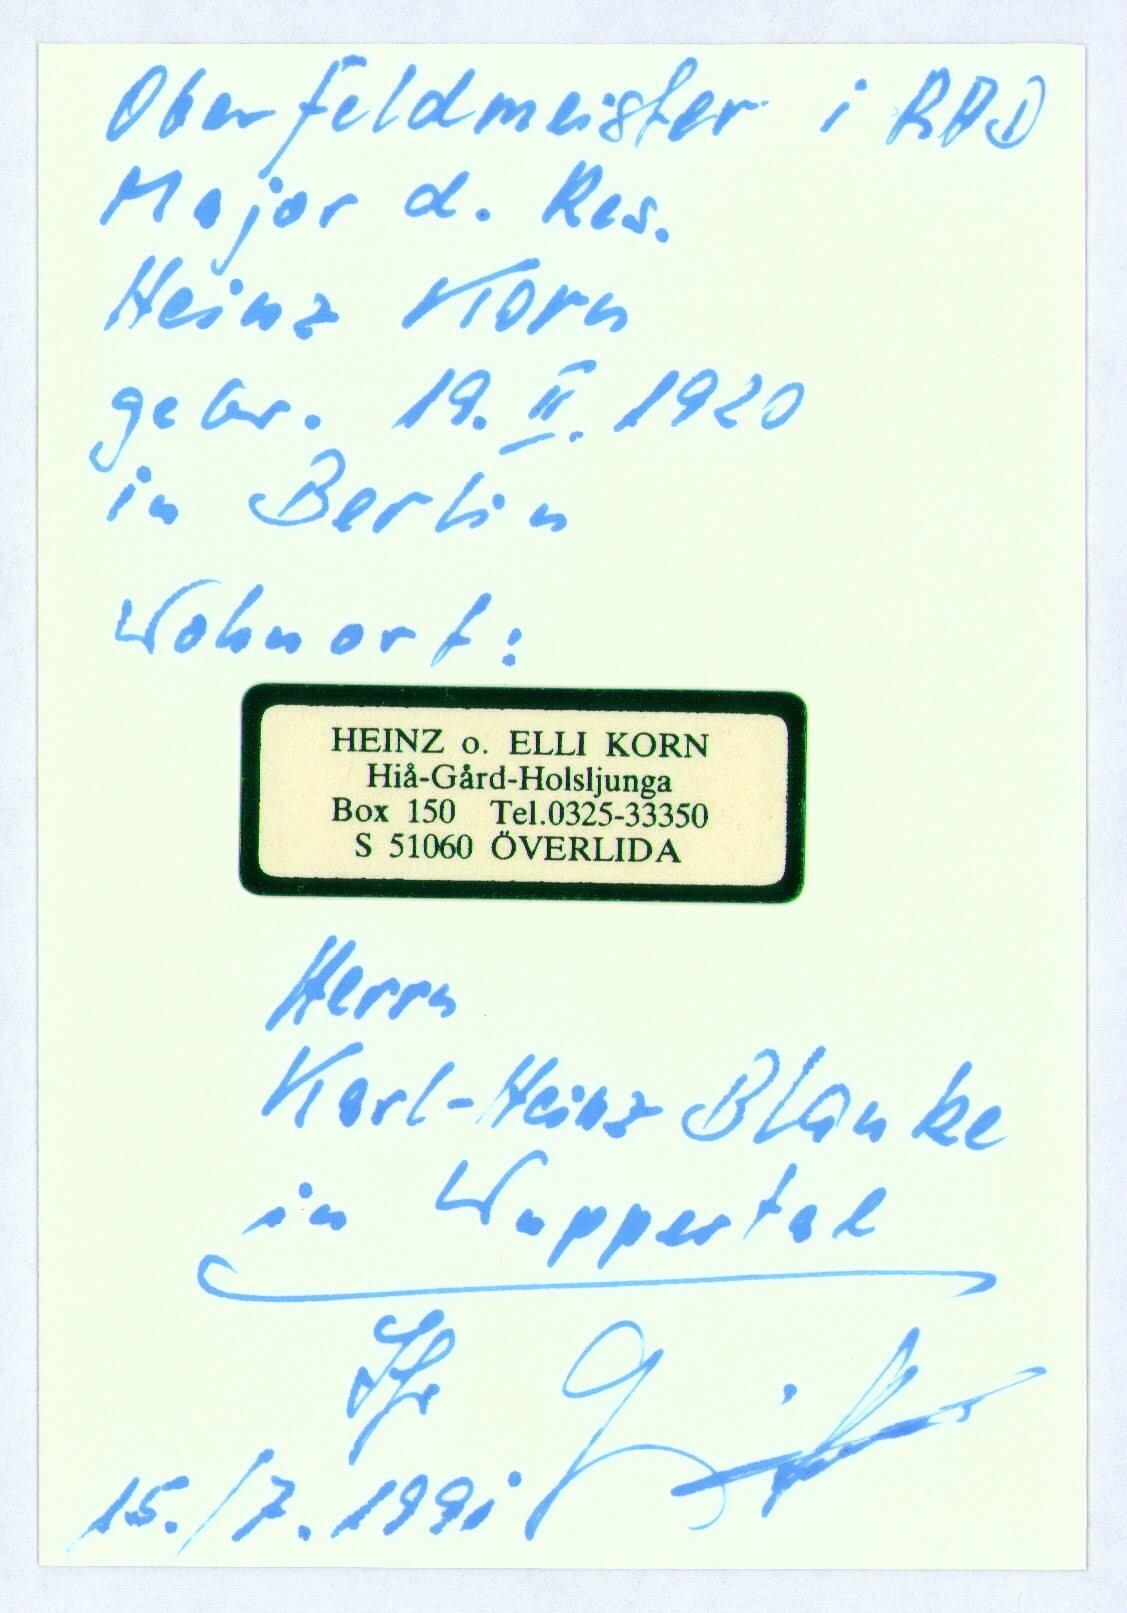 Oberfeldmeister i RAD
Major d. Res.
Heinz Korn
gebr. 19. II. 1920
in Berlin
Wohnort:
HEINZ o. ELLI KORN
Hiå-Gård-Holsljunga
Box 150 Tel.0325-33350
S 51060 ÖVERLIDA
Herrn
Karl-Heinz Blanke
in Wuppertal
Ihr
15./7. 1991